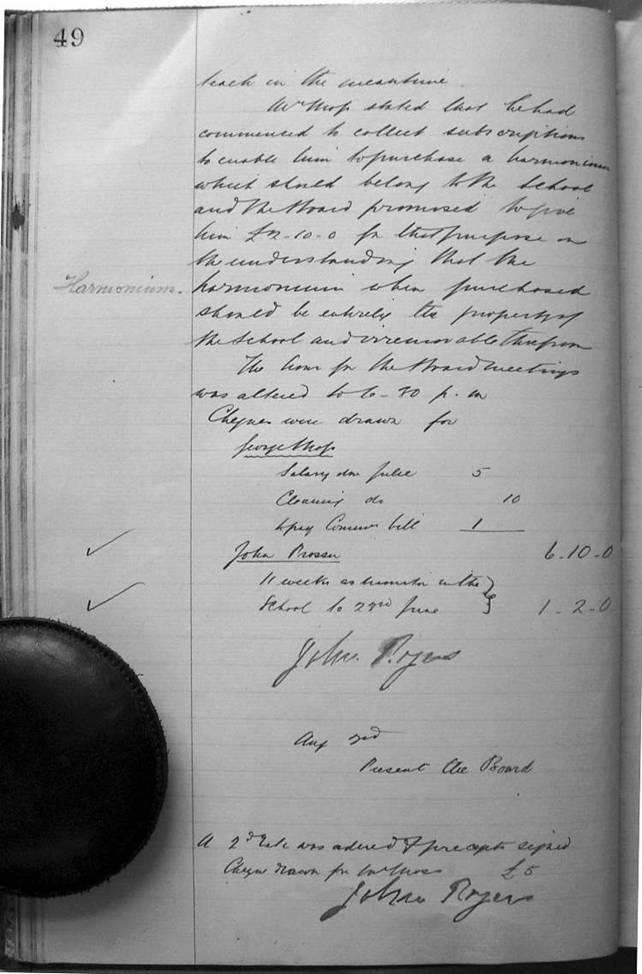 49
teach in the meantime.
Mr Moss stated that he had
commenced to collect subscriptions
to enable him to purchase a harmonium
which should belong to the School
and the Board promised to give
him £2-10-0 for that purpose on
the understanding that the
Harmonium.
harmonium when purchased
should be entirely the property of
the School and irremovable therefrom
The hour for the Board meetings
was altered to 6-30 p.m
Cheques were drawn for
George Moss
Salary due Julie 5
Cleaning do 10
to pay Common bill 1
John Prosser 6-10-0
11 weeks as monitor in the
School to 23rd June 1-2-0
John Rogers
Aug 3rd
Present the Board
A 2d Rate was ordered & precepts signed
Cheque drawn for Mr Moss £5
John Rogers